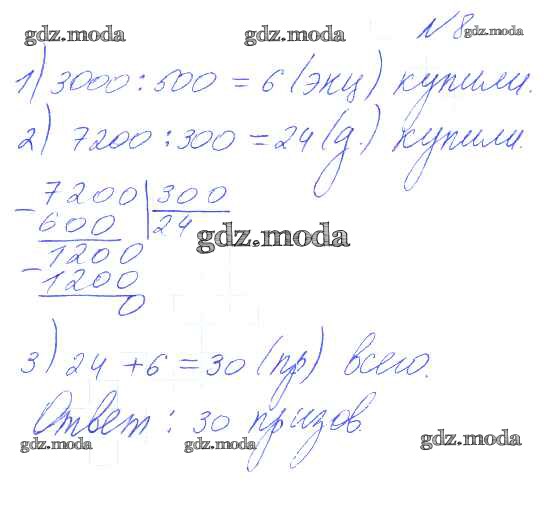 gdz.moda gdz.moda № 8 gdz.moda
1) 3000 : 500 = 6 (энц) купили.
2) 7200 : 300 = 24 (д.) купили.
- 7200 | 300
600 24
gdz.moda
- 1200
1200
0
3) 24 + 6 = 30 (пр) всего.
Ответ : 30 призов.
gdz.moda gdz.moda gdz.moda